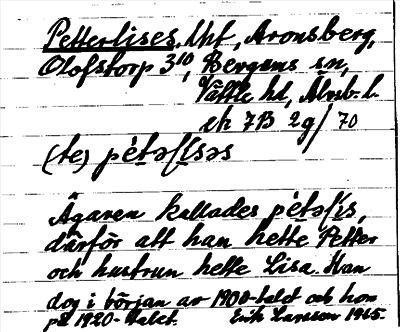 Petterlises, lht, Aronsberg,
Olofstorp 3¹⁰, Bergums sn,
Vättle hd, Älvsb. l.
ek 7B 2g/70
(te) pètəʃìsəs
Ägaren kallades pètəʃìs,
därför att han hette Petter
och hustrun hette Lisa. Han
dog i början av 1900-talet och hon
på 1920-talet. Erik Larsson 1965.